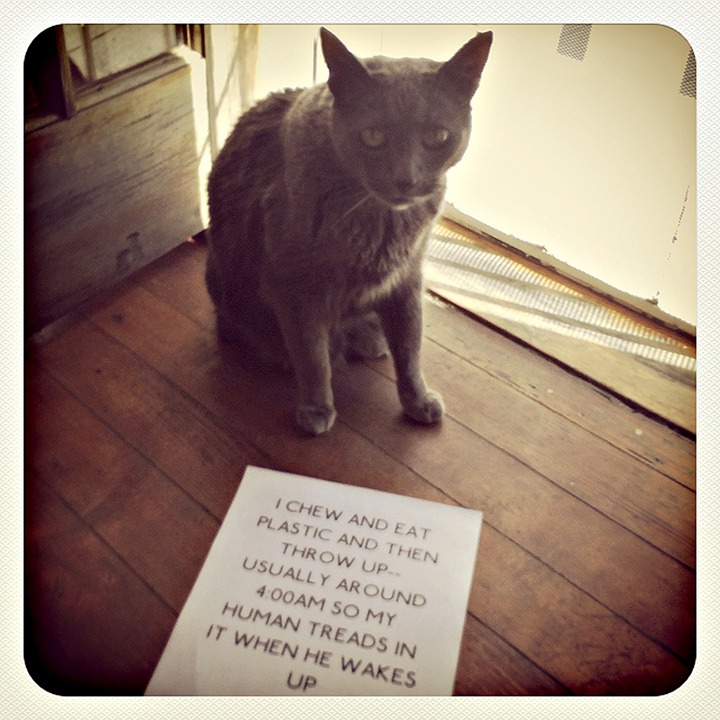 I CHEW AND EAT
PLASTIC AND THEN
THROW UP--
USUALLY AROUND
4:00AM SO MY
HUMAN TREADS IN
IT WHEN HE WAKES
UP